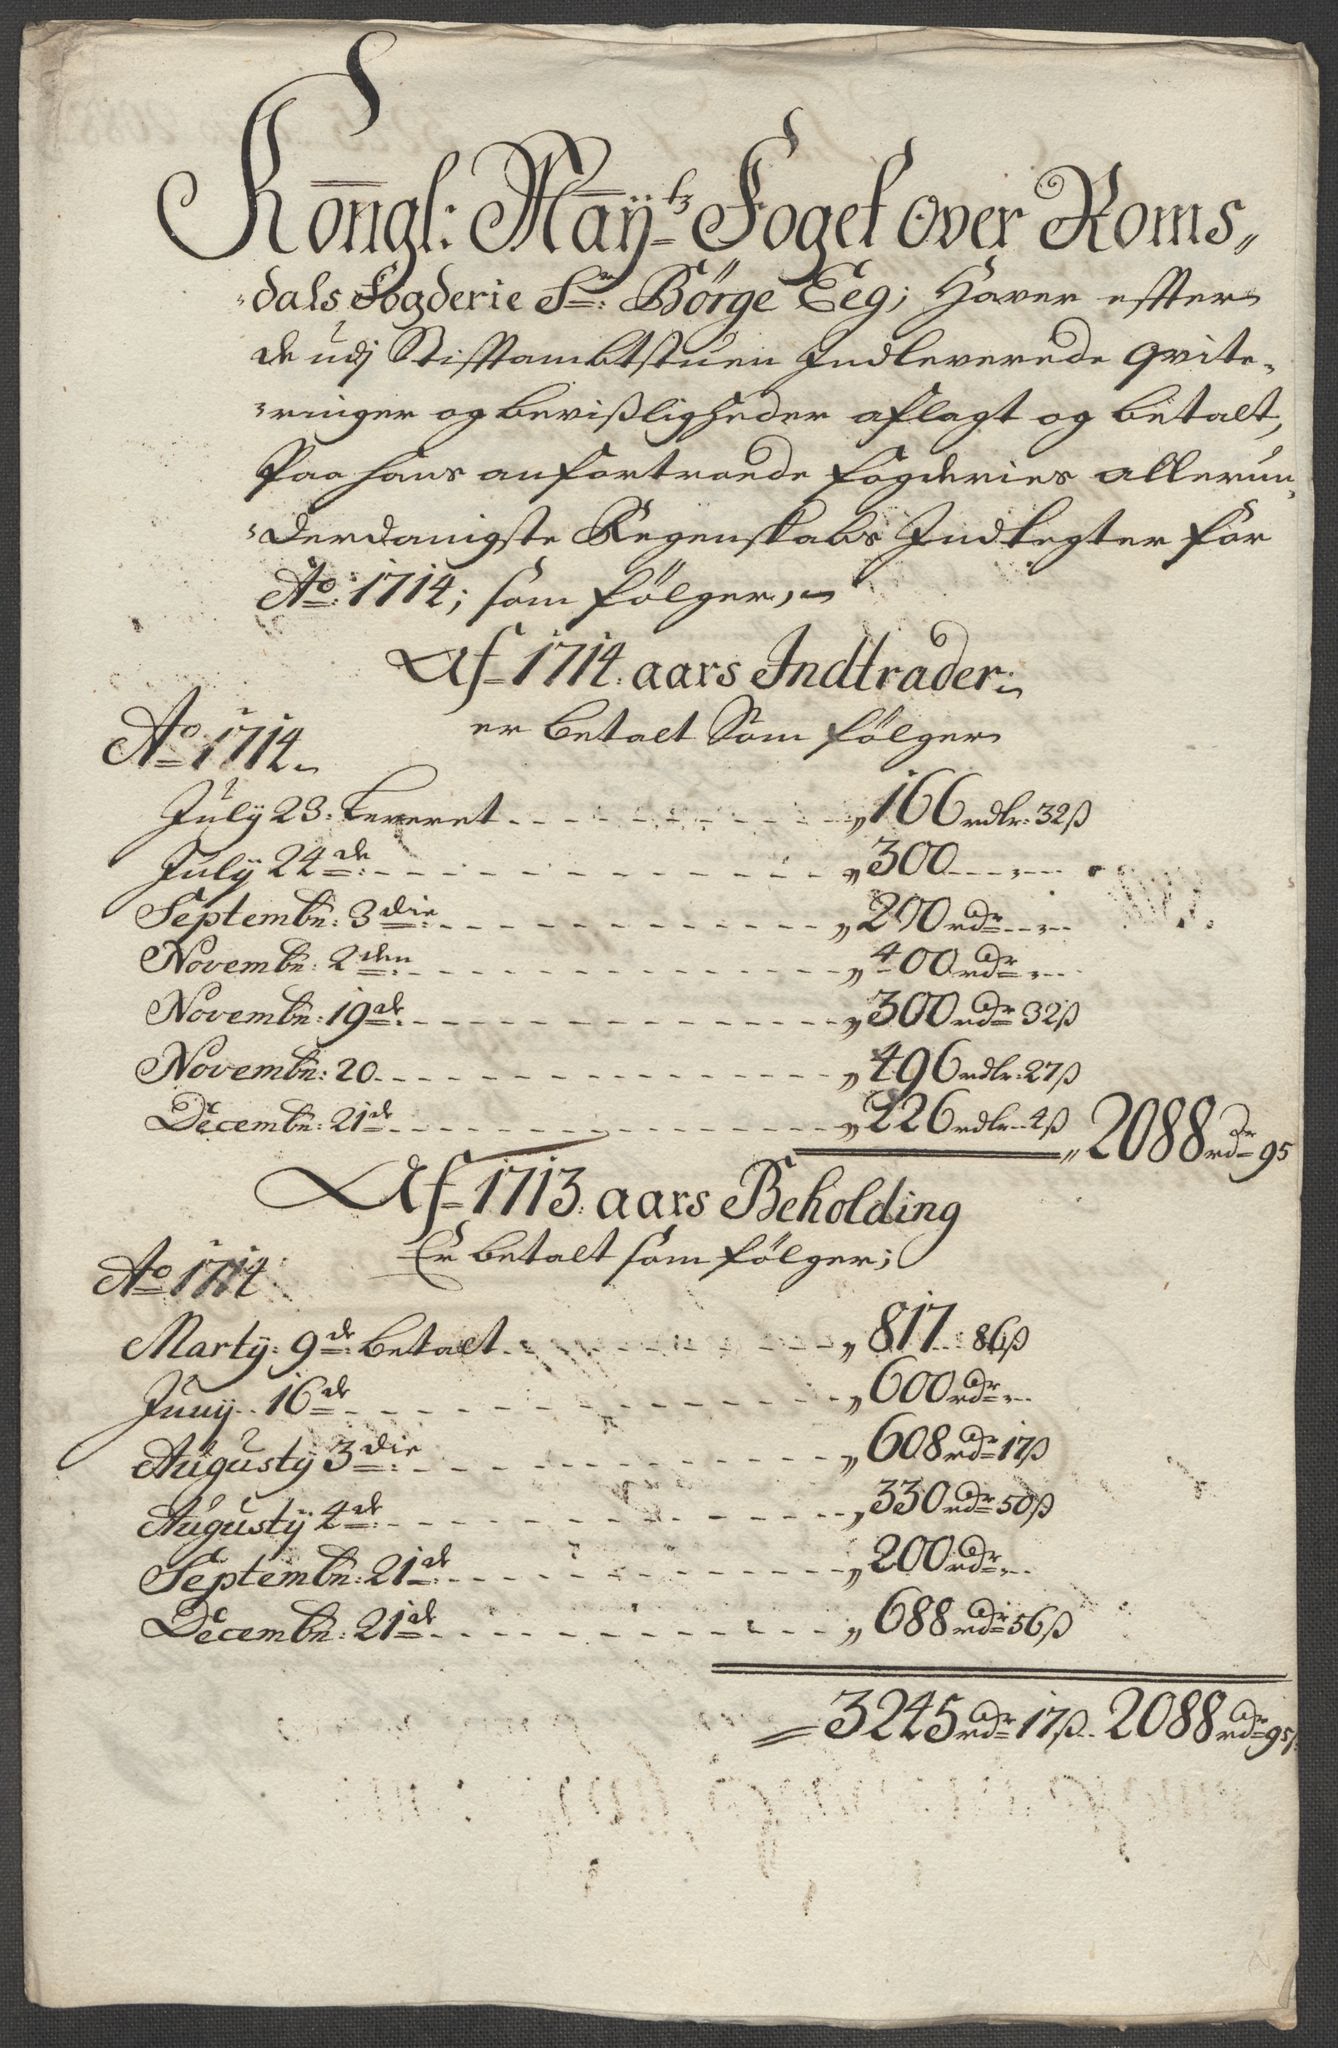 Kongl: Maÿtz Foget over Roms„
„dals Fogderie Sr: Børge Eeg; Haver effter
de udj Stifftambtstuen Indleverede qvite-
-ringer og bevißligheder aflagt og betalt,
Paa hans anfortroede fogderies allerun„
„derdanigste Regenskabs Indtegter for
Ao: 1714; som følger,
Af 1714. aars Indtrader:
er betalt Som følger
Ao 1714
July 23: Leveret „166 rdlr: 32ß
July 24de: „300
Septembr: 3die: „200 rdr
Novembr: 2den: „400 rdr
Novembr: 19de: „300 rdr 32ß
Novembr: 20 „496 rdlr: 27ß
Decembr: 21de „226 rdlr 4ß „2088 rdr 95
Af 1713. aars Beholding
Er betalt som følger;
Ao 1714
Martÿ: 9de: betalt „817 : 86ß
Junÿ 16de „600 rdr
Augustÿ 3die: „608 rdr 17ß
Augustÿ 4de: „330 rdr 50ß
Septembr: 21de „200 rdr
Decembr: 21de „688 rdr 56ß
3245 rdr 17ß 2088 rdr 95ß